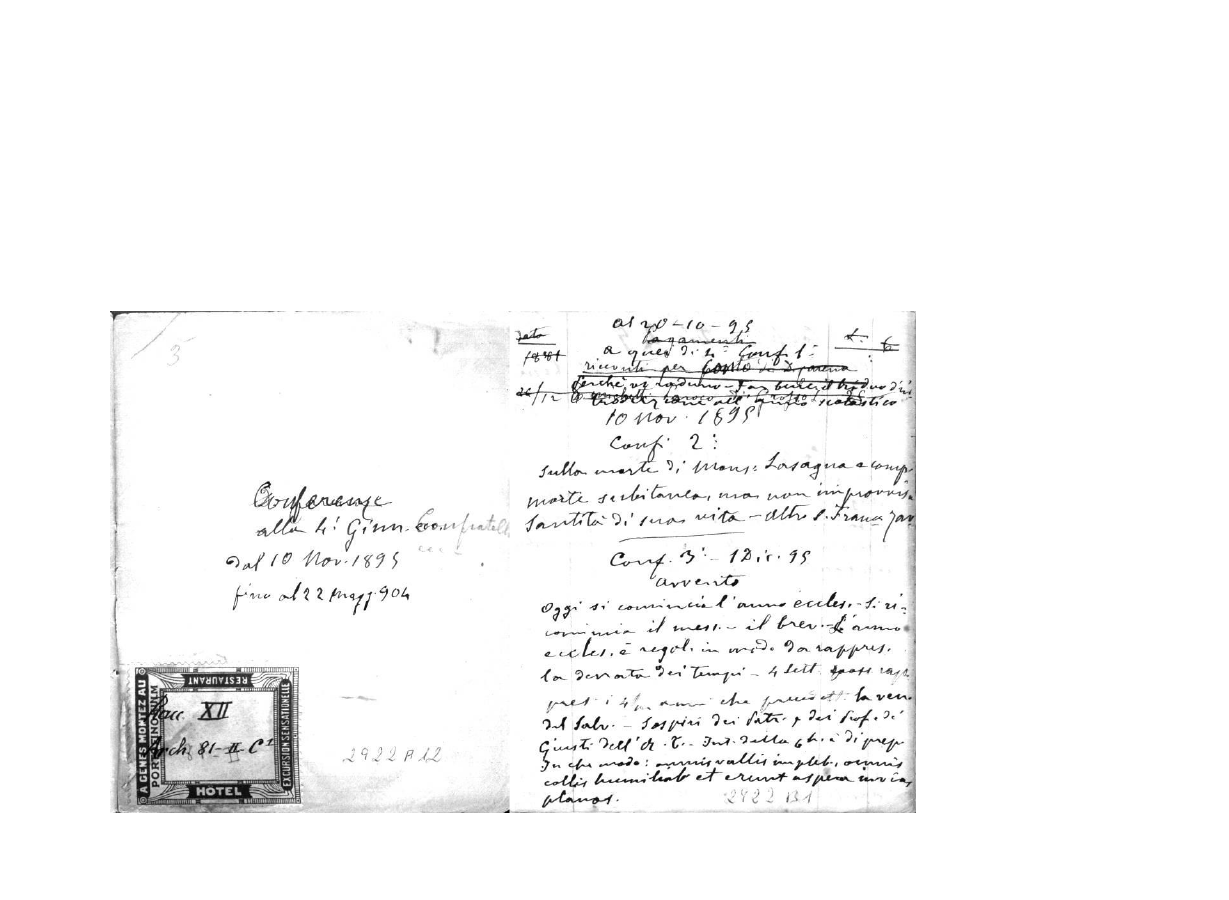 3
Conferenze
alla 4ª Ginn. Confratelli
dal 10 Nov. 1895
fino al 22 Magg. 904
RESTAURANT
A GÊNES MONTEZ AU
PORTINO
EXCURSION SENSATIONELLE
HOTEL
XII
Arch. 81-II C¹
2922 A 12
al 20-10-95
Data
Pagamenti
L.
1881
a quei di 4ª Conf. 1ª
ricevuti per conto di
26/12 Perchè vi raduno - Far bene il triduo d'in
scolastico
10 Nov. 1895
Conf. 2ª
Sulla morte di Mons. Lasagna e comp.
morte subitanea, ma non improvvisa
Santità di sua vita - Altro S. Franc. Zav
Conf. 3ª - 1 Dic. 95
avvento
Oggi si comincia l'anno eccles. - Si ri-
comincia il mess. - il brev. - L'anno
eccles. è regol. in modo da rappres.
la durata dei tempi - 4 Sett.
pres i 4 m anni che precedett. la ven
del Salv. - Sospiri dei Patr. e dei Prof. dei
Giusti dell'A. T. - Int. della Ch. è di prep
In che modo: omnis vallis impleb., omnis
collis humiliab et erunt aspera in vias
planas.
2922 B 1